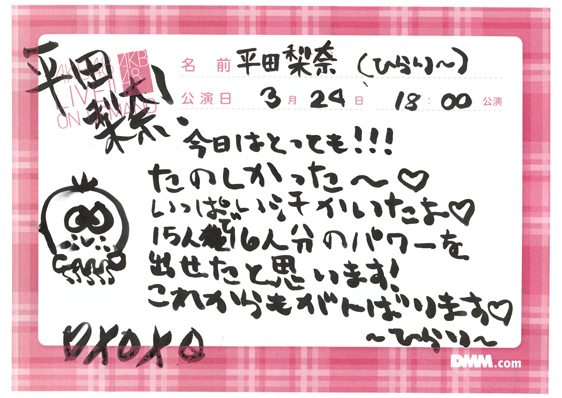 平田
梨奈!
AKB
48
LIVE!!
ON DEMAND
名 前 平田 梨奈 (ひらり〜)
公演日 3月24日 18:00公演
今日はとっても!!!
たのしかった〜♡
いっぱい汗かいたよ♡
15人で16人分のパワーを
出せたと思います!
これからもがんばります♡
〜ひらり〜
OXOXO
DMM.com